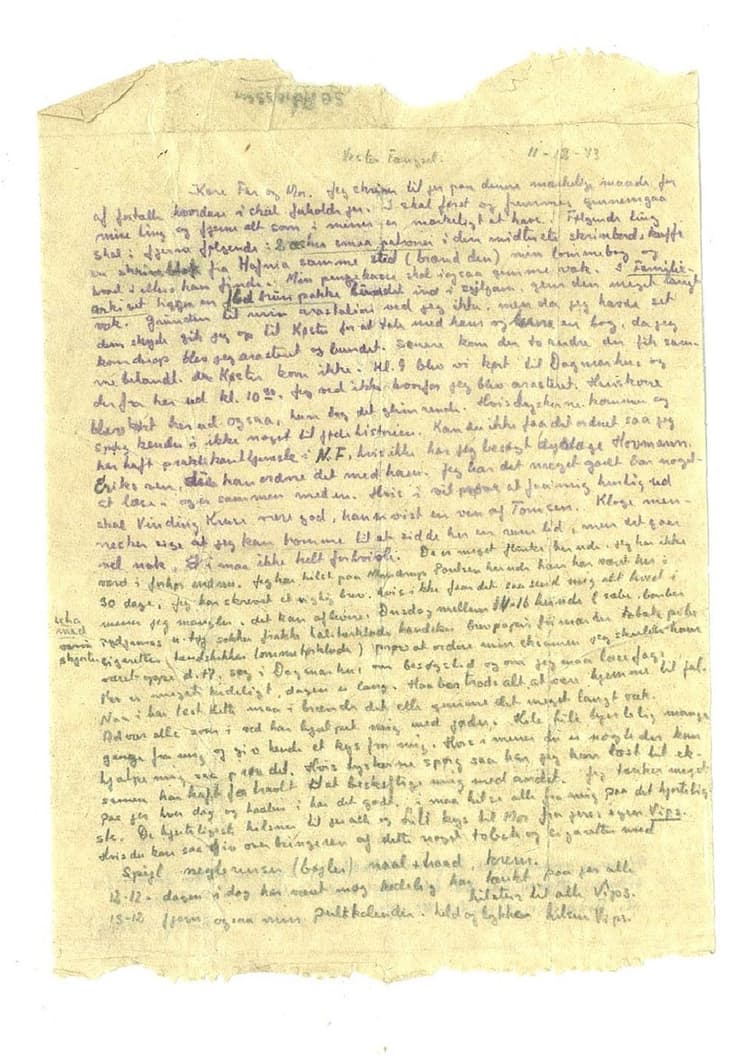 Vester Fængsel. 11-12-43
Kære Far og Mor. Jeg skriver til jer paa denne mærkelige maade for
at fortælle hvordan i skal forholde jer. I skal først og fremmest gennemgaa
mine ting og fjerne alt som i mener er mærkeligt at have. Følgende ting
skal i fjerne følgende: 2 æsker smaa patroner i den midterste skrivebords skuffe
en skriveblok fra Hafnia samme sted (brænd den) min lommebog og
hvad i ellers kan finde. Min pengekasse skal i ogsaa gemme væk. I Familie-
arkivet ligger en flad brun pakke bundet ind i sejlgarn, gem den meget langt
væk. Grunden til min arrestation ved jeg ikke, men da jeg havde set
dem skyde gik jeg op til Køster for at tale med ham og laane en bog, da jeg
kom derop blev jeg arresteret og bundet. Senere kom den to andre der fik sam-
me behandl. da Køster kom ikke. Kl. 9 blev vi kørt til Dagmarhus og
derfra her ud kl. 10³⁰. Jeg ved ikke hvorfor jeg blev arresteret.
blev kørt her ud ogsaa, hun tog det glimrende. Hvis tyskerne kommer og
spørg kender i ikke noget til jødehistorien. Kan du ikke faa det ordnet saa jeg
har haft praktikanttjeneste i N.F. hvis ikke har jeg besøgt dyrlæge Hovmann,
Eriks ven, Jeg har det meget godt har noget
at læse i og er sammen med en. Hvis i vil prøve at faa mig hurtig ud
skal Vinding Kruse være god, han er vist en ven af Tomsen. Kloge men-
nesker siger at jeg kan komme til at sidde her en rum tid, men det gaar
vel nok, I maa ikke helt fortvivle. De er meget flinke her ude. Jeg har ikke
været i forhør endnu. Jeg har hilst paa Poulsen herude han har været her i
30 dage. Jeg har skrevet et rigtig brev. hvis i ikke faar det saa send mig alt hvad i
mener jeg mangler, det kan afleveres Onsdag mellem 14-16 herude (sæbe, barber
pydjamas u.tøj sokker frakke halstørklæde brevpapir frimærker tobak pibe
cigaretter (tændstikker lommetørklæde) prøv at ordne min eksamen jeg skulde have
uha
mad
været oppe d. 17. søg i Dagmarhus om besøgstid og om jeg maa læse fag.
Her er meget kedeligt, dagen er lang. Haaber trods alt at være hjemme til jul.
Naar i har læst dette maa i brænde det eller gemme det meget langt væk.
Det var alle som i ved har hjulpet mig med jøder. Hils hjertelig mange
gange fra mig og giv hende et kys fra mig. Hvis i mener er nogle der kan
hjælpe mig saa prøv det. Hvis tyskerne spørg saa har jeg kun læst til ek-
samen har haft for travlt til at beskæftige mig med andet. Jeg tænker meget
paa jer hver dag og haaber i har det godt. i maa hilse alle fra mig paa det hjertelig-
ste. De hjerteligste hilsner til jer alle og kys til Mor fra jeres egen Vips.
Hvis du kan saa giv overbringeren af dette noget tobak og cigaretter med
Spejl neglerenser (bøjler) naal + traad, krem.
12-12. dagen i dag har været meg kedelig har tænkt paa jer alle
hilsner til alle Vips.
13-12 fjern ogsaa min pultkalender. held og lykke hilsen Vips.